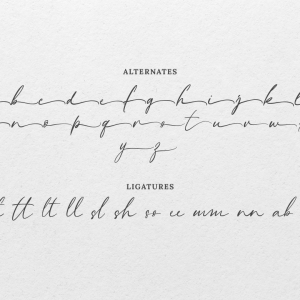 ALTERNATES
b c d e f g h i j k l
n o p q r s t u v w
y z
LIGATURES
tt lt ll sl sh so cc mm nn ab